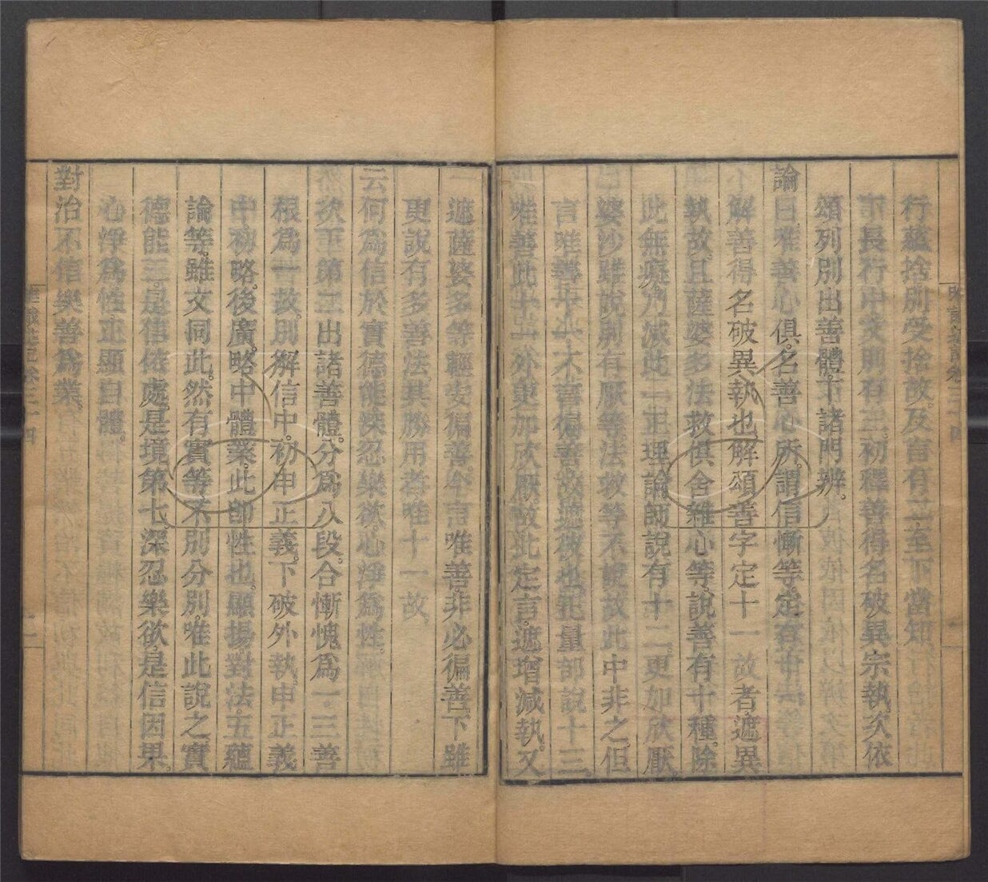 行蘊捨別受捨故及言有二至下當知
宗長行中文別有三初釋善得名破異宗執次依
頌列別出善體下諸門辨
論曰唯善心俱名善心所謂信慚等定有十一
解善得名破異執也解頌善字定十一故者遮異
執故且薩婆多法救俱舍雜心等說善有十種除
此無癡乃減此一正理論師說有十二更加欣厭
婆沙雖說別有厭等法救等不說故此中非之但
言唯善十一不言徧善故遮彼也
唯善此十一外更加欣厭故此定言遮增減執又
遮薩婆多等輕安徧善今言唯善非必徧善下雖
更說有多善法其勝用者唯十一故
云何為信於實德能深忍樂欲心淨為性
次下第二出諸善體分為八段合慚愧為一三善
根為一故別解信中初申正義下破外執申正義
中初略後廣略中體業此即性也顯揚對法五蘊
論等雖文同此然有實等不別分別唯此說之實
德能三是信依處是境第七深忍樂欲是信因果
心淨為性正顯自體
對治不信樂善為業